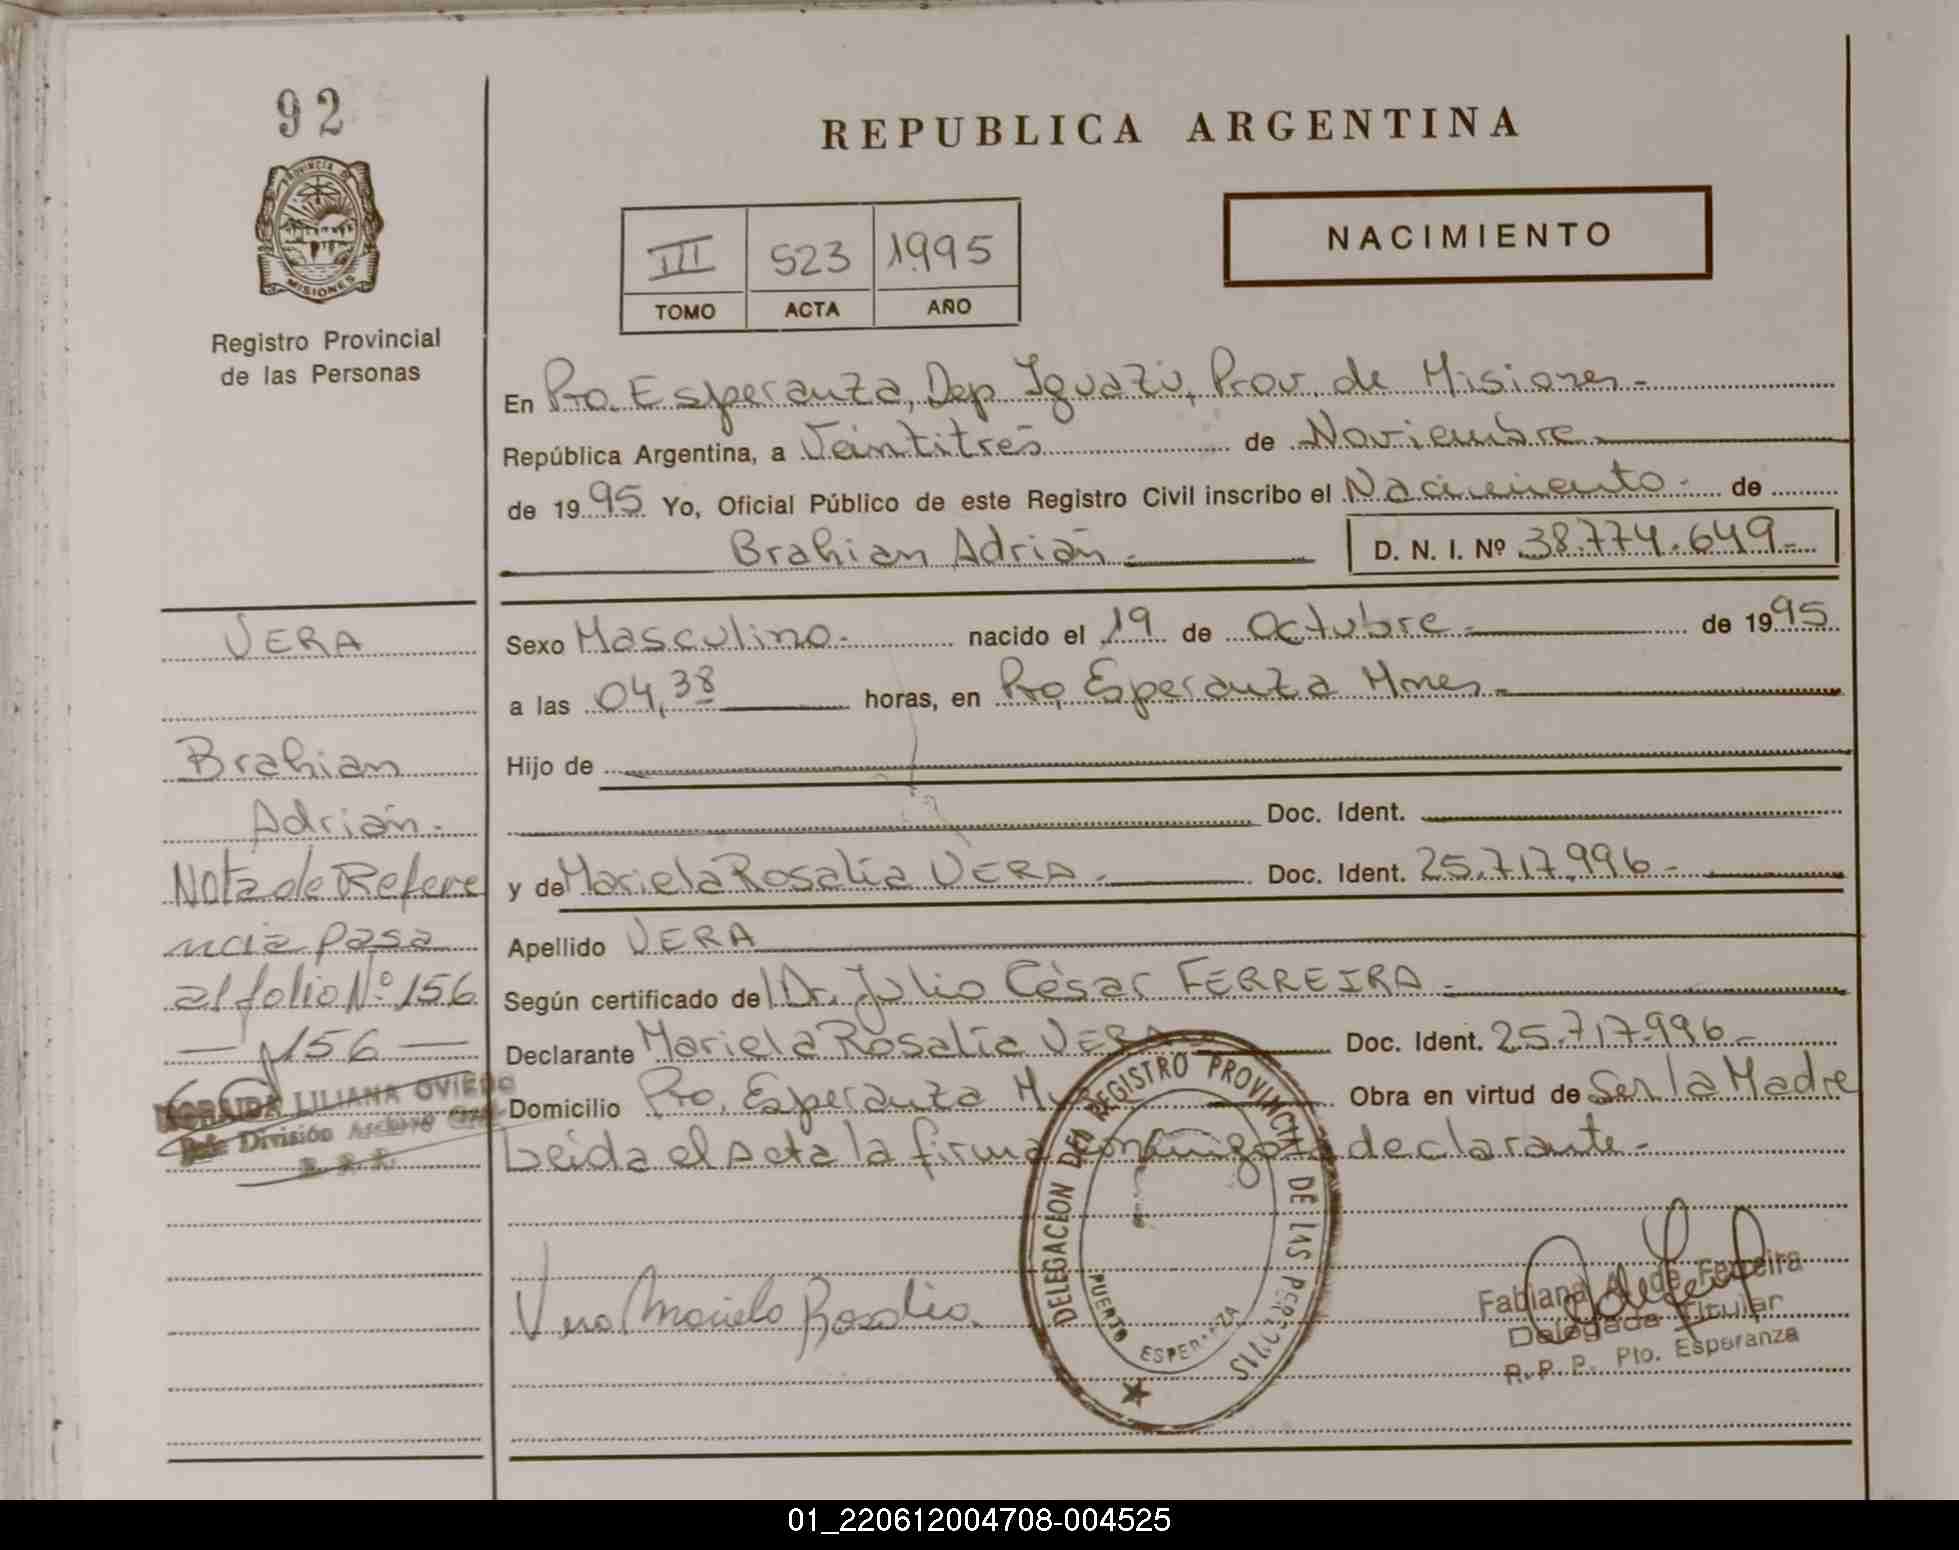 92
PROVINCIA DE
MISIONES
Registro Provincial
de las Personas
REPUBLICA ARGENTINA
III 523 1995
TOMO ACTA AÑO
NACIMIENTO
En Pto. Esperanza, Dep Iguazú, Prov. de Misiones.-
República Argentina, a Veintitres de Noviembre
de 1995 Yo, Oficial Público de este Registro Civil inscribo el Nacimiento de
Brahian Adrián.- D. N. I. Nº 38.774.649.-
VERA
Brahian
Adrián.-
Nota de Refere
ncia pasa
al folio Nº 156
— 156 —
LILIANA OVIEDO
Jefe División Archivo
Sexo Masculino.- nacido el 19 de Octubre.- de 1995
a las 04,38 horas, en Pto. Esperanza Mnes.-
Hijo de
Doc. Ident.
y de Mariela Rosalía VERA.- Doc. Ident. 25.717.996.-
Apellido VERA
Según certificado del Dr. Julio César FERREIRA.-
Declarante Mariela Rosalía VERA Doc. Ident. 25.717.996.-
Domicilio Pto. Esperanza Obra en virtud de Ser la Madre
Leida el acta la firma conmigo la declarante.-
Vera Mariela Rosalia.
DELEGACION DEL REGISTRO PROVINCIAL DE LAS PERSONAS
PUERTO ESPERANZA
Fabiana A. de Ferreira
Delegada Titular
R. P. P. Pto. Esperanza
01_220612004708-004525